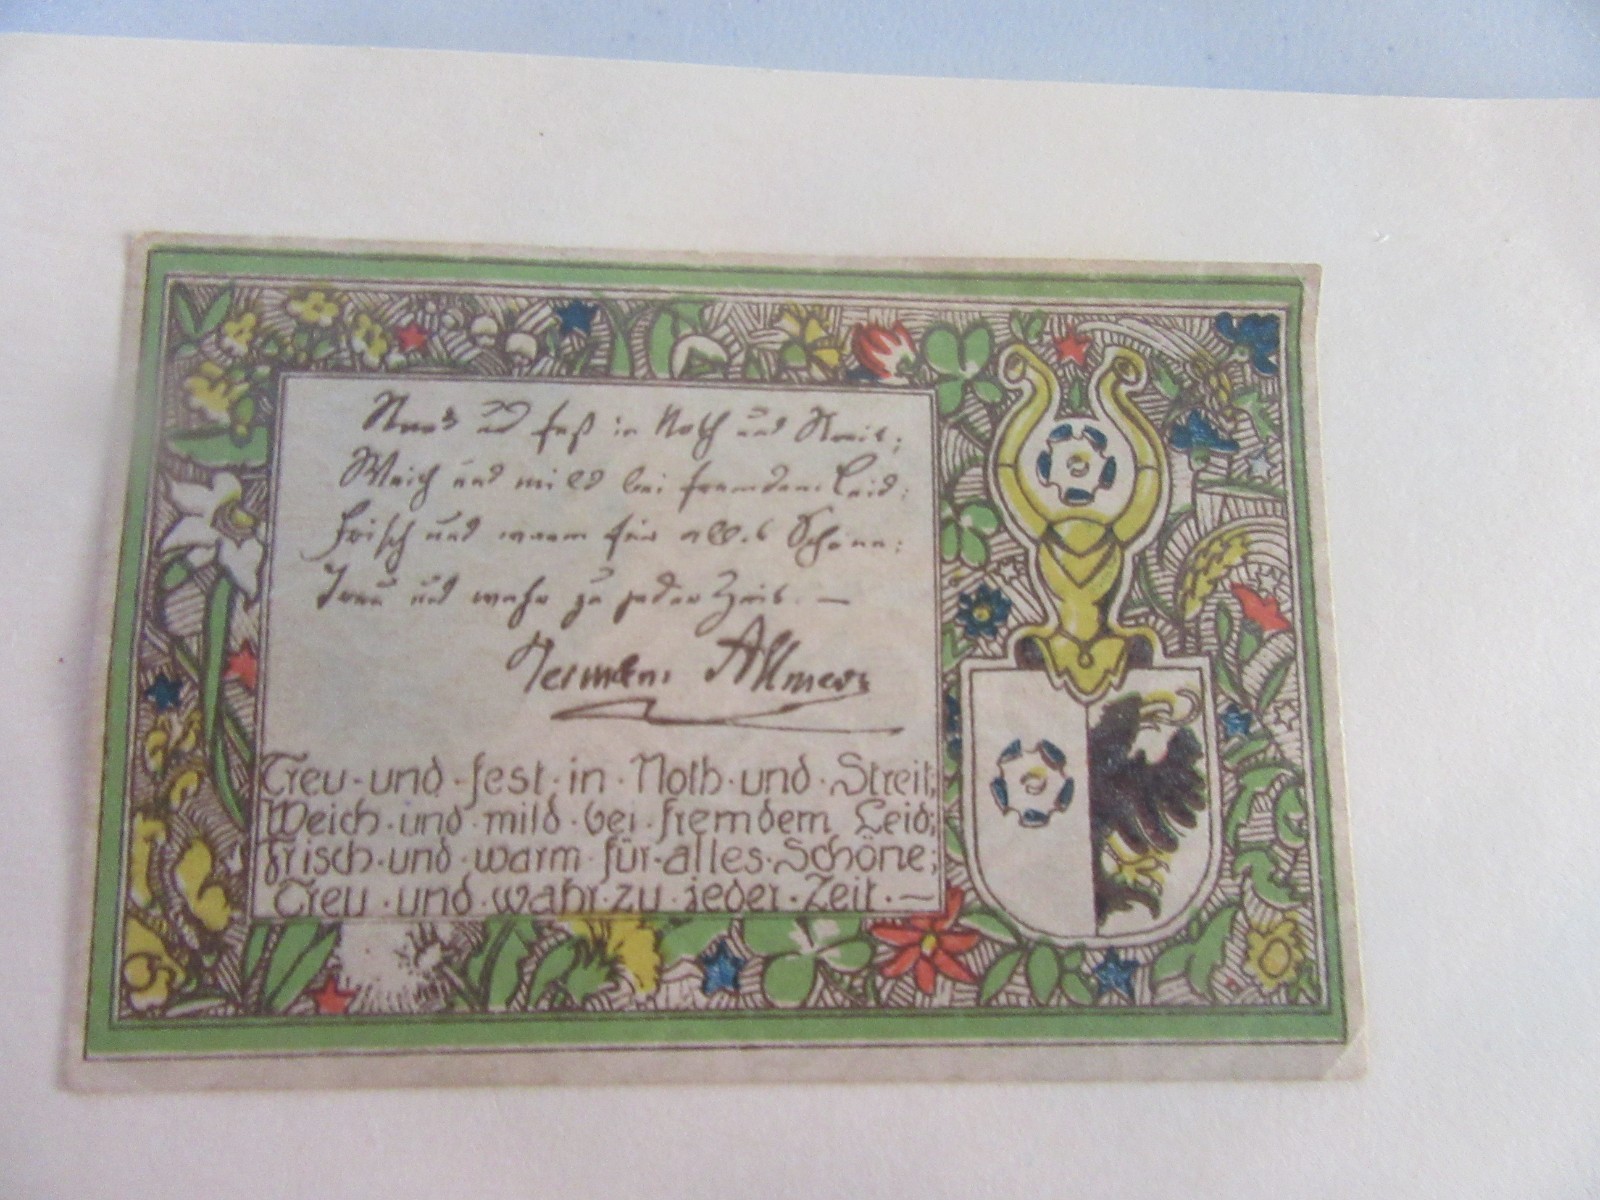 und fest in Noth und Streit;
Weich und mild bei fremdem Leid;
Frisch und warm für alles Schöne;
Treu und wahr zu jeder Zeit. —
Hermann Allmers
Treu · und · fest · in · Noth · und · Streit;
Weich · und · mild · bei · fremdem Leid;
Frisch · und · warm · für · alles · Schöne;
Treu · und · wahr · zu · jeder · Zeit · —